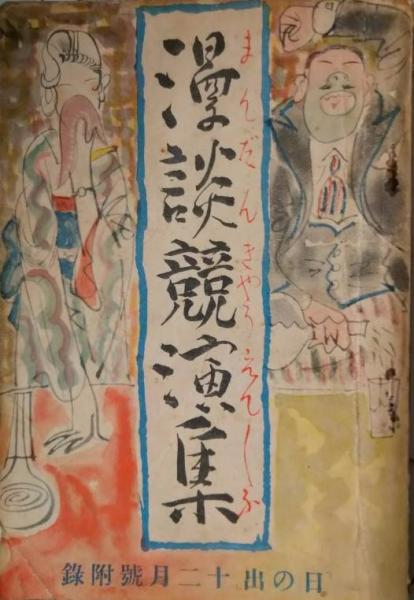 漫談競演集
まんだんきやうえんしふ
日の出十二月號附錄